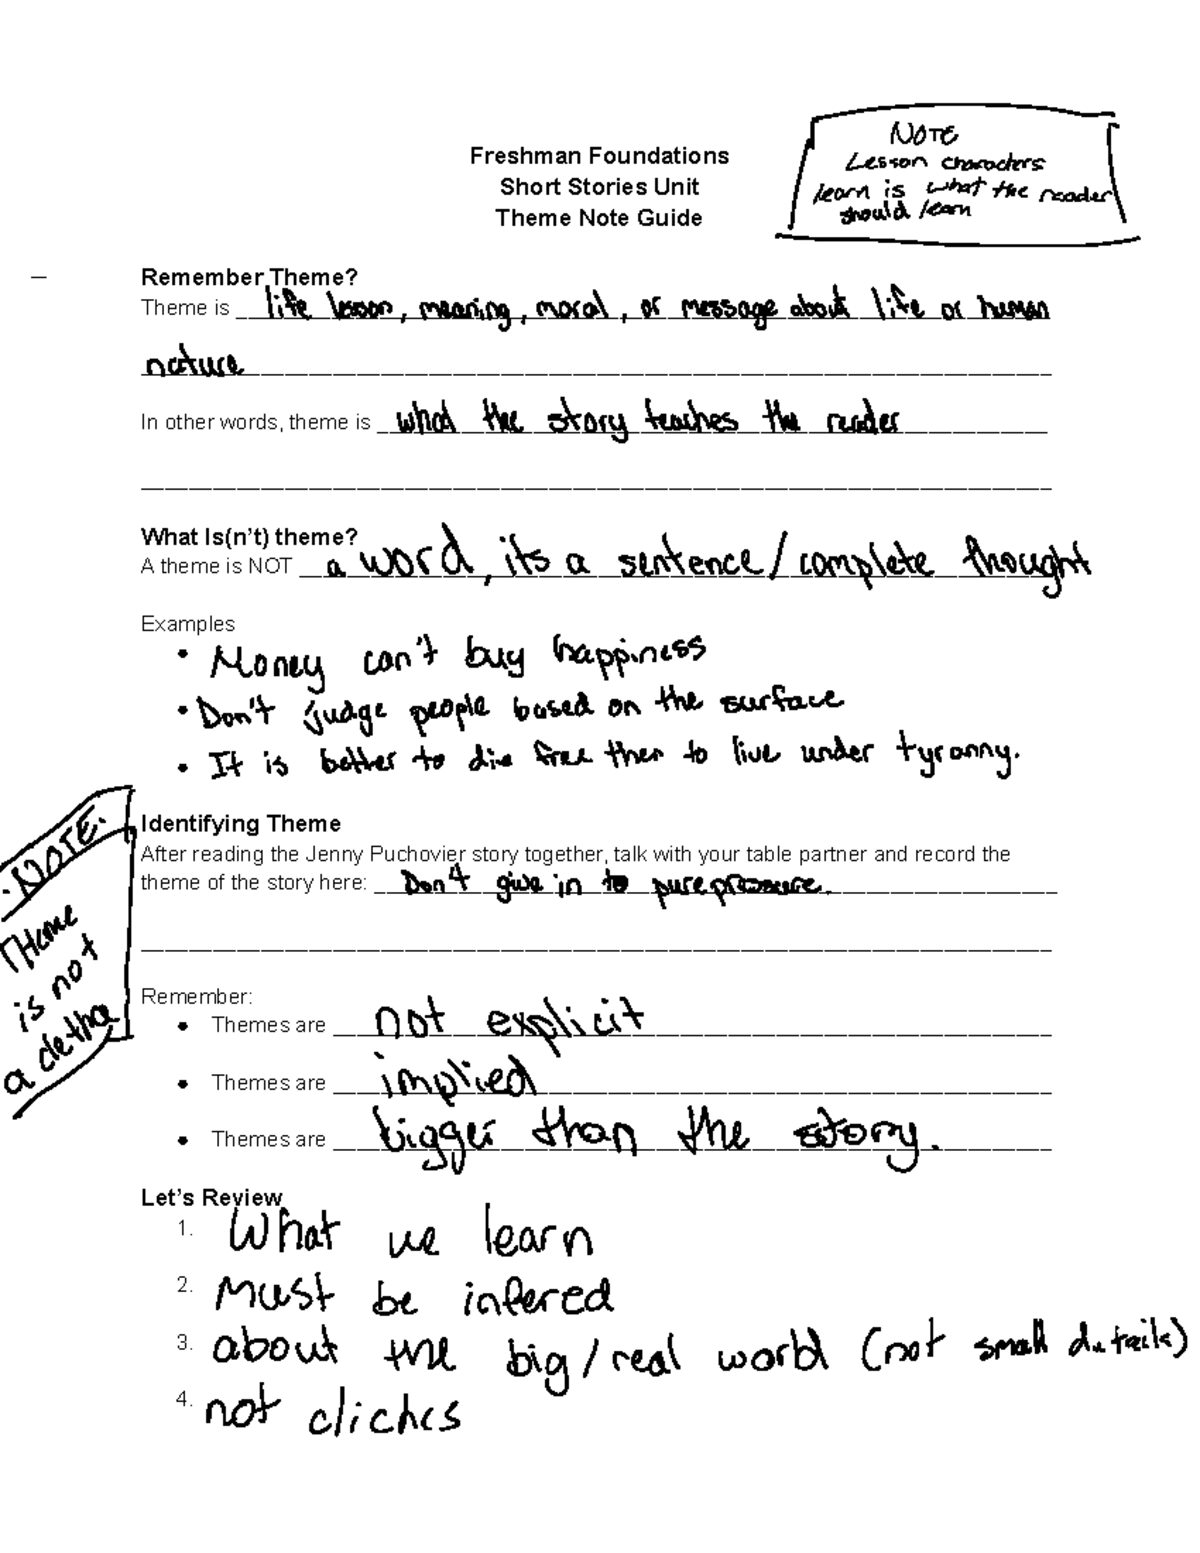 NOTE
Lesson characters
learn is what the reader
should learn
Freshman Foundations
Short Stories Unit
Theme Note Guide
Remember Theme?
Theme is life lesson, meaning, moral, or message about life or human
nature
In other words, theme is what the story teaches the reader
What Is(n't) theme?
A theme is NOT a word, its a sentence/complete thought
Examples
• Money can't buy happiness
• Don't judge people based on the surface
• It is better to die free then to live under tyranny.
Identifying Theme
After reading the Jenny Puchovier story together, talk with your table partner and record the
theme of the story here: Don't give in to purepressure.
NOTE.
THeme
is not
a
Remember:
• Themes are not explicit
• Themes are implied
• Themes are bigger than the story.
Let's Review
1. What we learn
2. Must be infered
3. about the big/real world (not small details)
4. not cliches